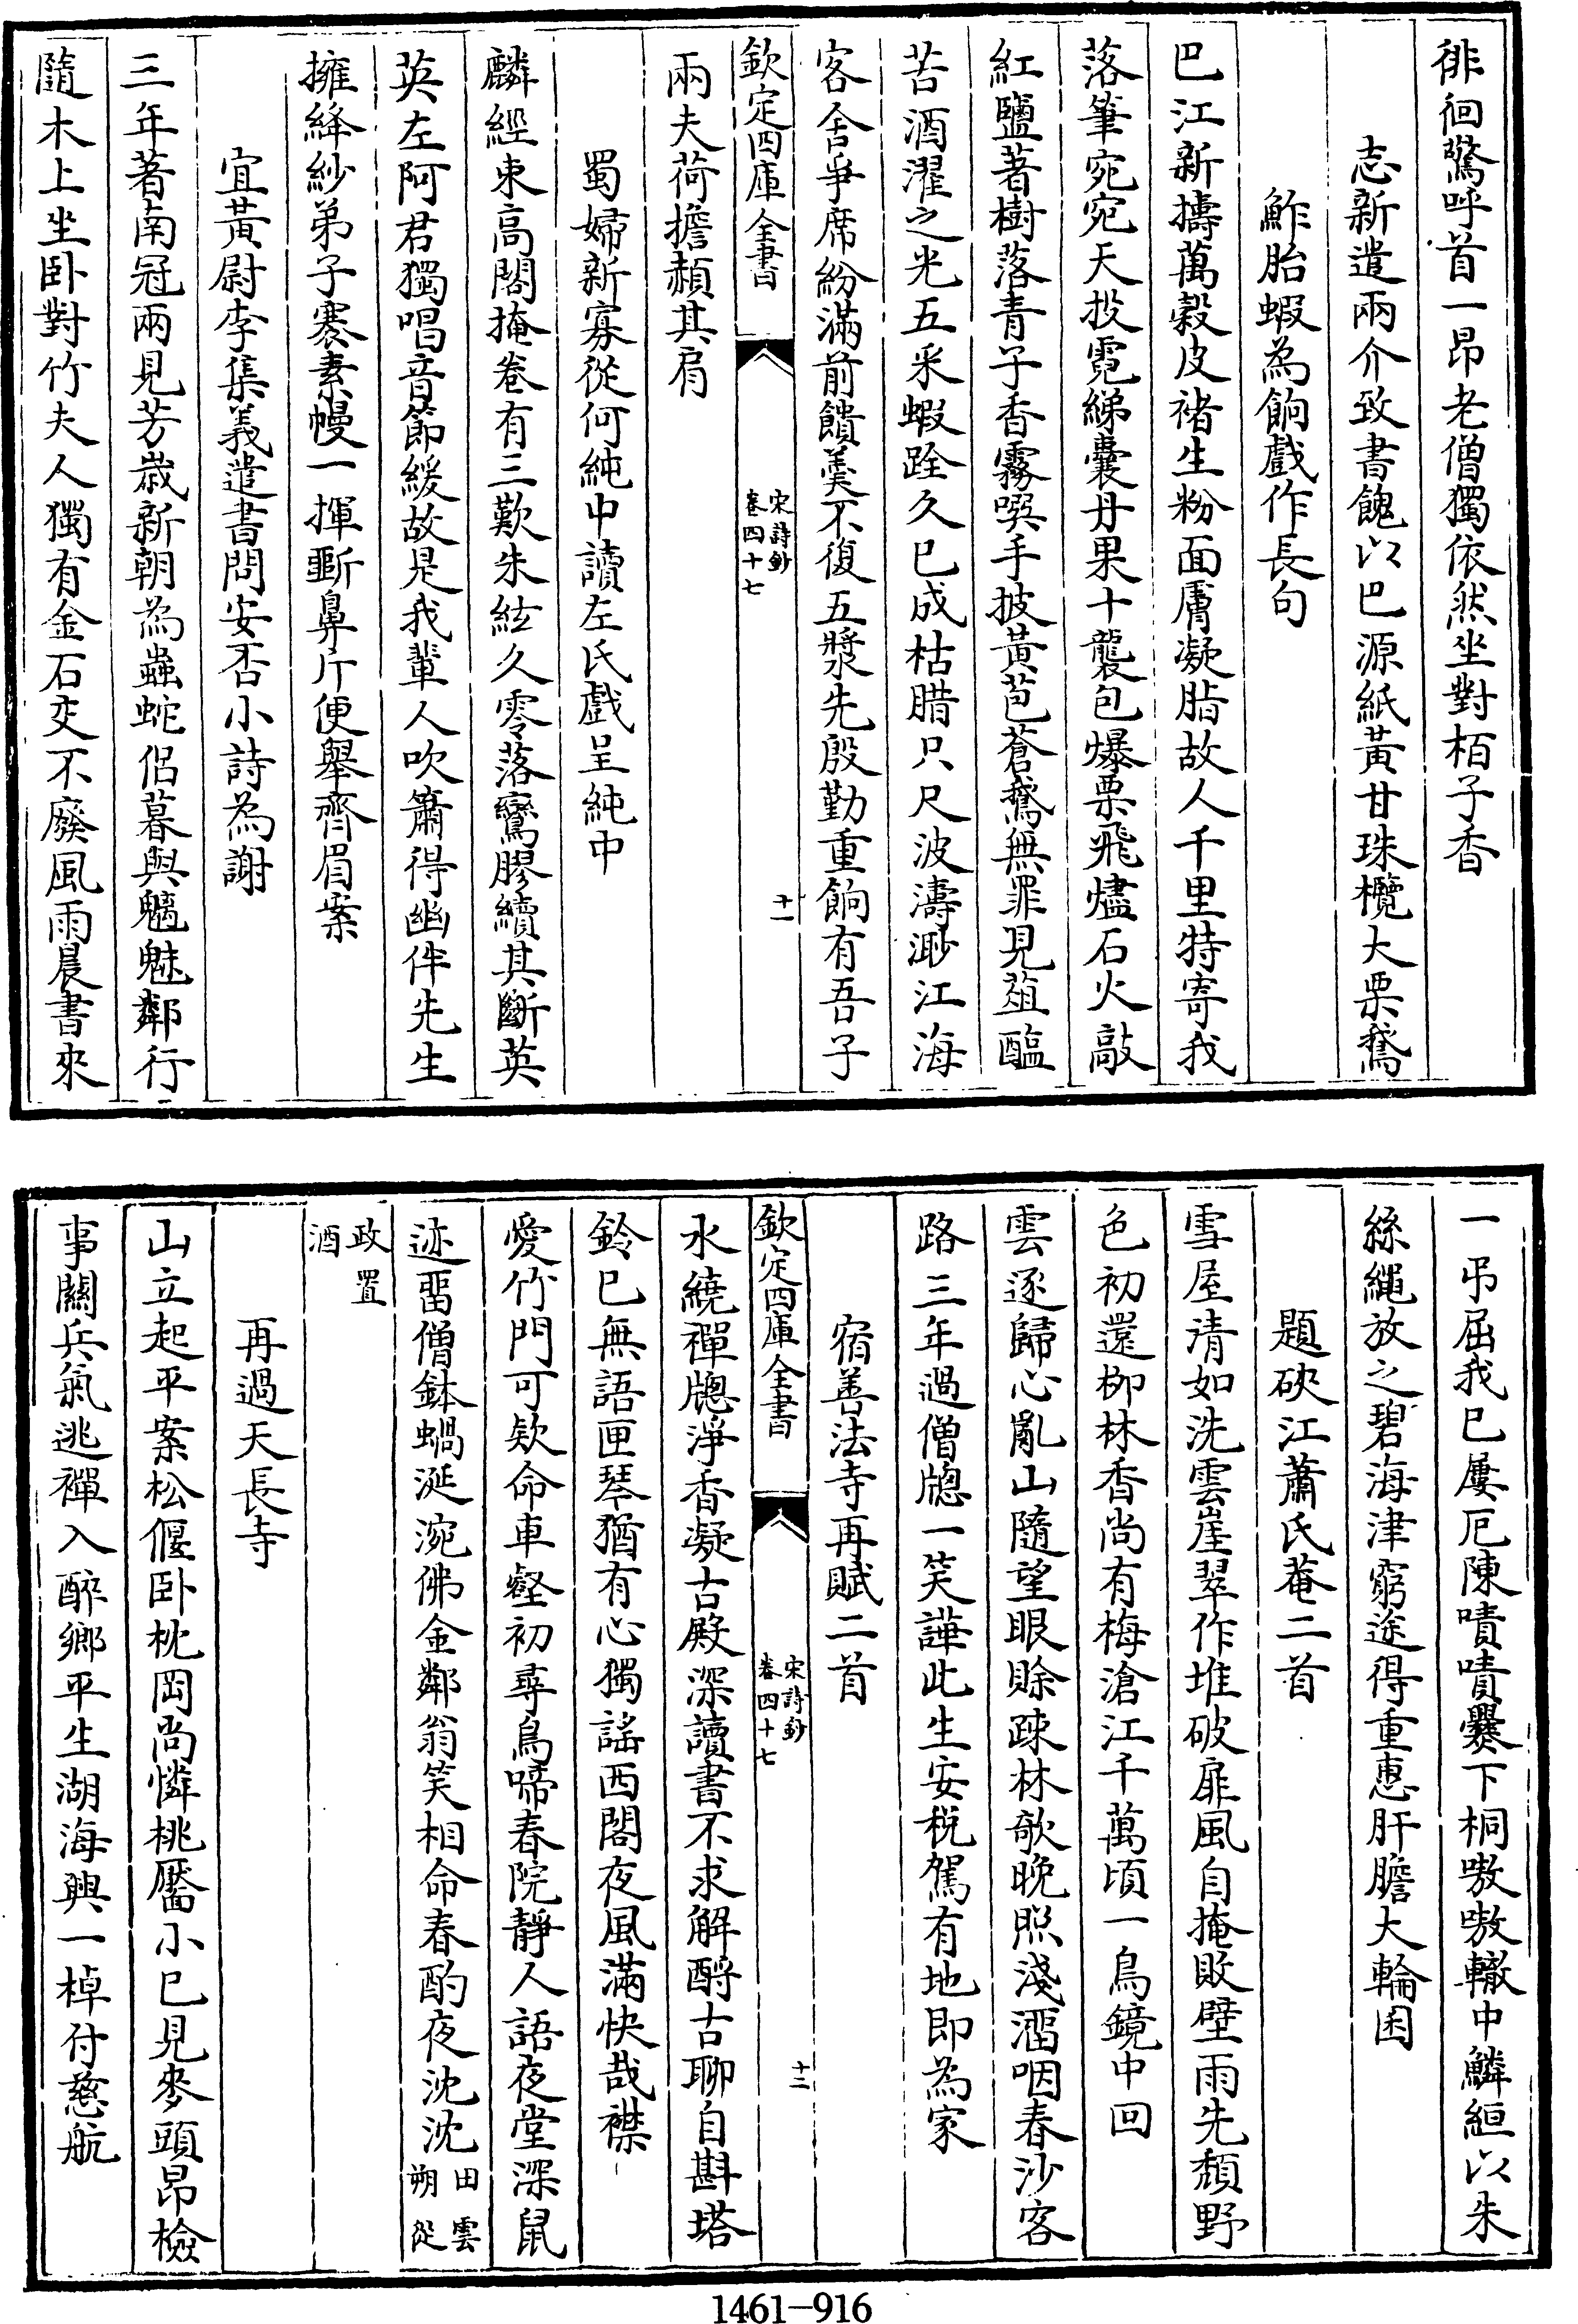 徘徊驚呼首一昂老僧獨依然坐對栢子香
志新遣兩介致書餽以巴源紙黃甘珠欖大栗鵞
鮓胎蝦為餉戲作長句
巴江新擣萬榖皮褚生粉面膚凝脂故人千里特寄我
落筆宛宛天投霓綈囊丹果十襲包爆栗飛燼石火敲
紅鹽著樹落青子香霧噀手披黃苞蒼鵞無罪見葅醢
苦酒濯之光五采蝦跧久已成枯腊只尺波濤渺江海
客舍爭席紛滿前饋羮不復五漿先殷勤重餉有吾子
欽定四庫全書
宋詩鈔
卷四十七
十一
兩夫荷擔頳其肩
蜀婦新寡從何純中讀左氏戲呈純中
麟經束高閣掩卷有三歎朱絃久零落鸞膠續其斷英
英左阿君獨唱音節緩故是我輩人吹簫得幽伴先生
擁絳紗弟子褰素幔一揮斵鼻斤便舉齊眉案
宜黃尉李集義遣書問安否小詩為謝
三年著南冠兩見芳歳新朝為蟲蛇侶暮與魑魅鄰行
隨木上坐卧對竹夫人獨有金石交不廢風雨晨書來
一弔屈我已屢厄陳嘖嘖爨下桐嗷嗷轍中鱗絙以朱
絲繩放之碧海津窮途得重惠肝膽大輪囷
題硤江蕭氏菴二首
雪屋清如洗雲崖翠作堆破扉風自掩敗壁雨先頽野
色初還柳林香尚有梅滄江千萬頃一鳥鏡中回
雲逐歸心亂山隨望眼賒疎林欹晚照淺溜咽春沙客
路三年過僧牕一笑譁此生安稅駕有地即為家
宿善法寺再賦二首
欽定四庫全書
宋詩鈔
卷四十七
十二
水繞禪牕淨香凝古殿深讀書不求解酹古聊自斟塔
鈴已無語匣琴猶有心獨謡西閣夜風滿快哉襟
愛竹門可欵命車壑初尋鳥啼春院靜人語夜堂深鼠
迹畱僧鉢蝸涎涴佛金鄰翁笑相命春酌夜沈沈田雲
朔從
政置
酒
再過天長寺
山立起平案松偃卧枕岡尚憐桃靨小已見麥頭昂檢
事關兵氣逃禪入醉鄉平生湖海興一棹付慈航
1461-916